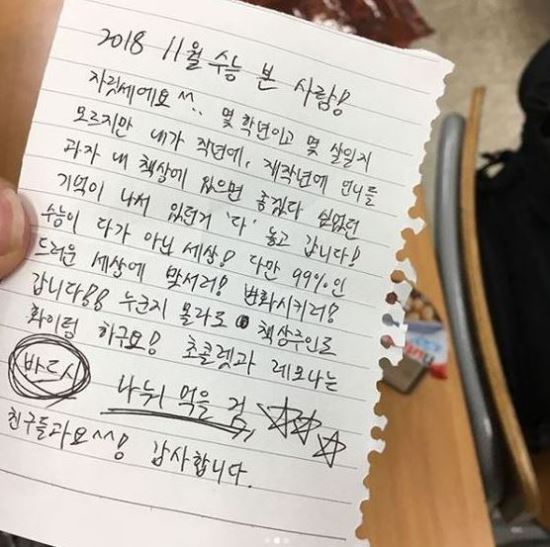 2018 11월 수능 본 사람!
자릿세에요^^.. 몇 학년이고 몇 살일지
모르지만 내가 작년에, 재작년에 언니들
과자 내 책상에 있으면 좋겠다 싶었던
기억이 나서 있던거 '다' 놓고 갑니다!
수능이 다가 아닌 세상! 다만 99%인
드러운 세상에 맞서러! 변화시키러!
갑니다!! 누군지 몰라도 책상주인도
화이팅 하구요! 초콜렛과 레모나는
반드시 나눠 먹을 것 ☆☆☆
친구들과요^^! 감사합니다.